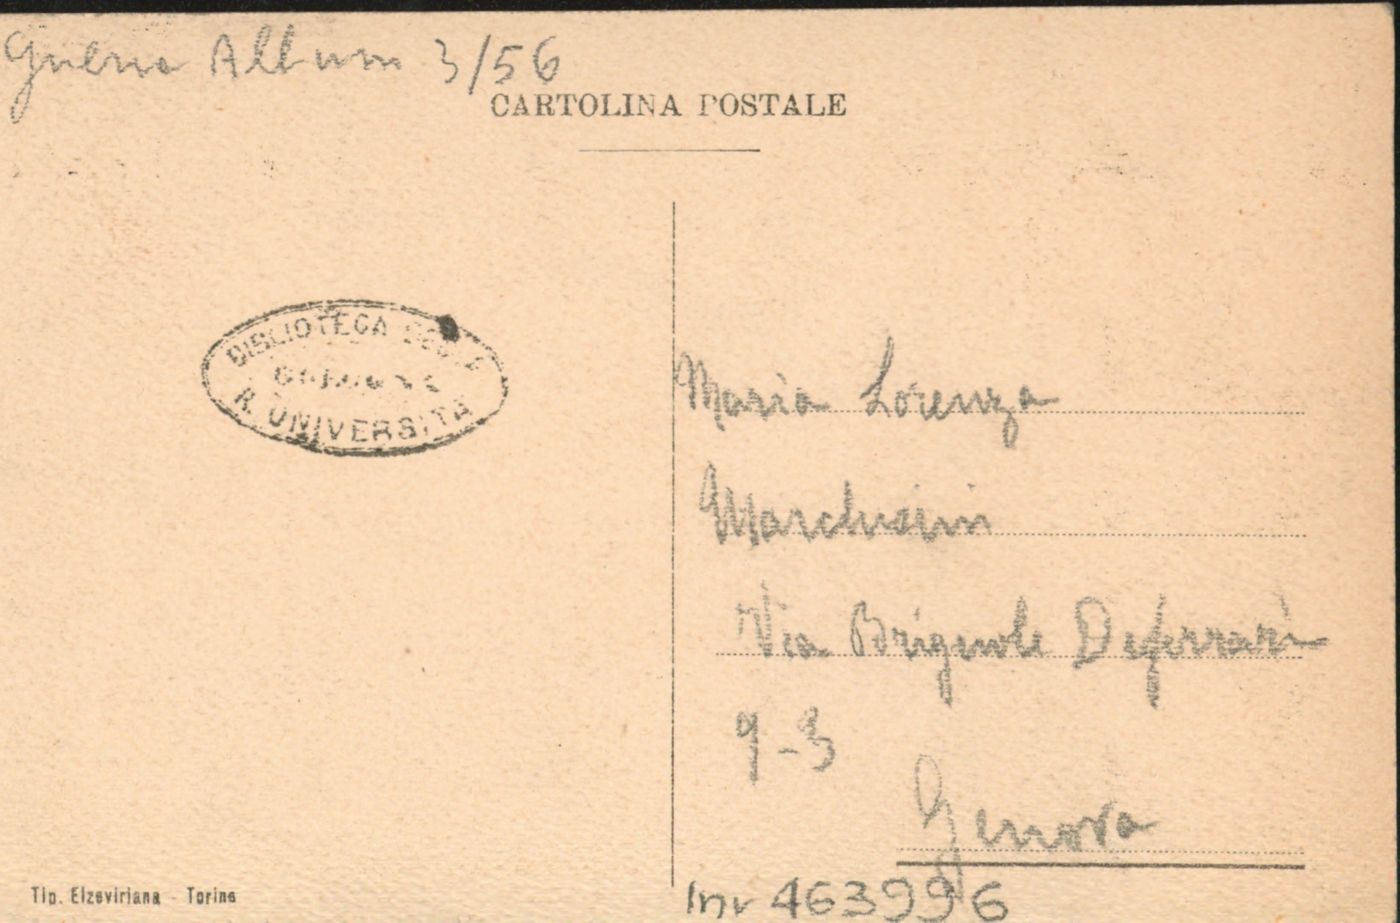 Guerra Album 3/56
CARTOLINA POSTALE
BIBLIOTECA DELLA
R. UNIVERSITÀ
Maria Lorenza
Marchisini
Via Brignole Deferrari
9-3
Genova
Tip. Elzeviriana - Torino
Inv 463996